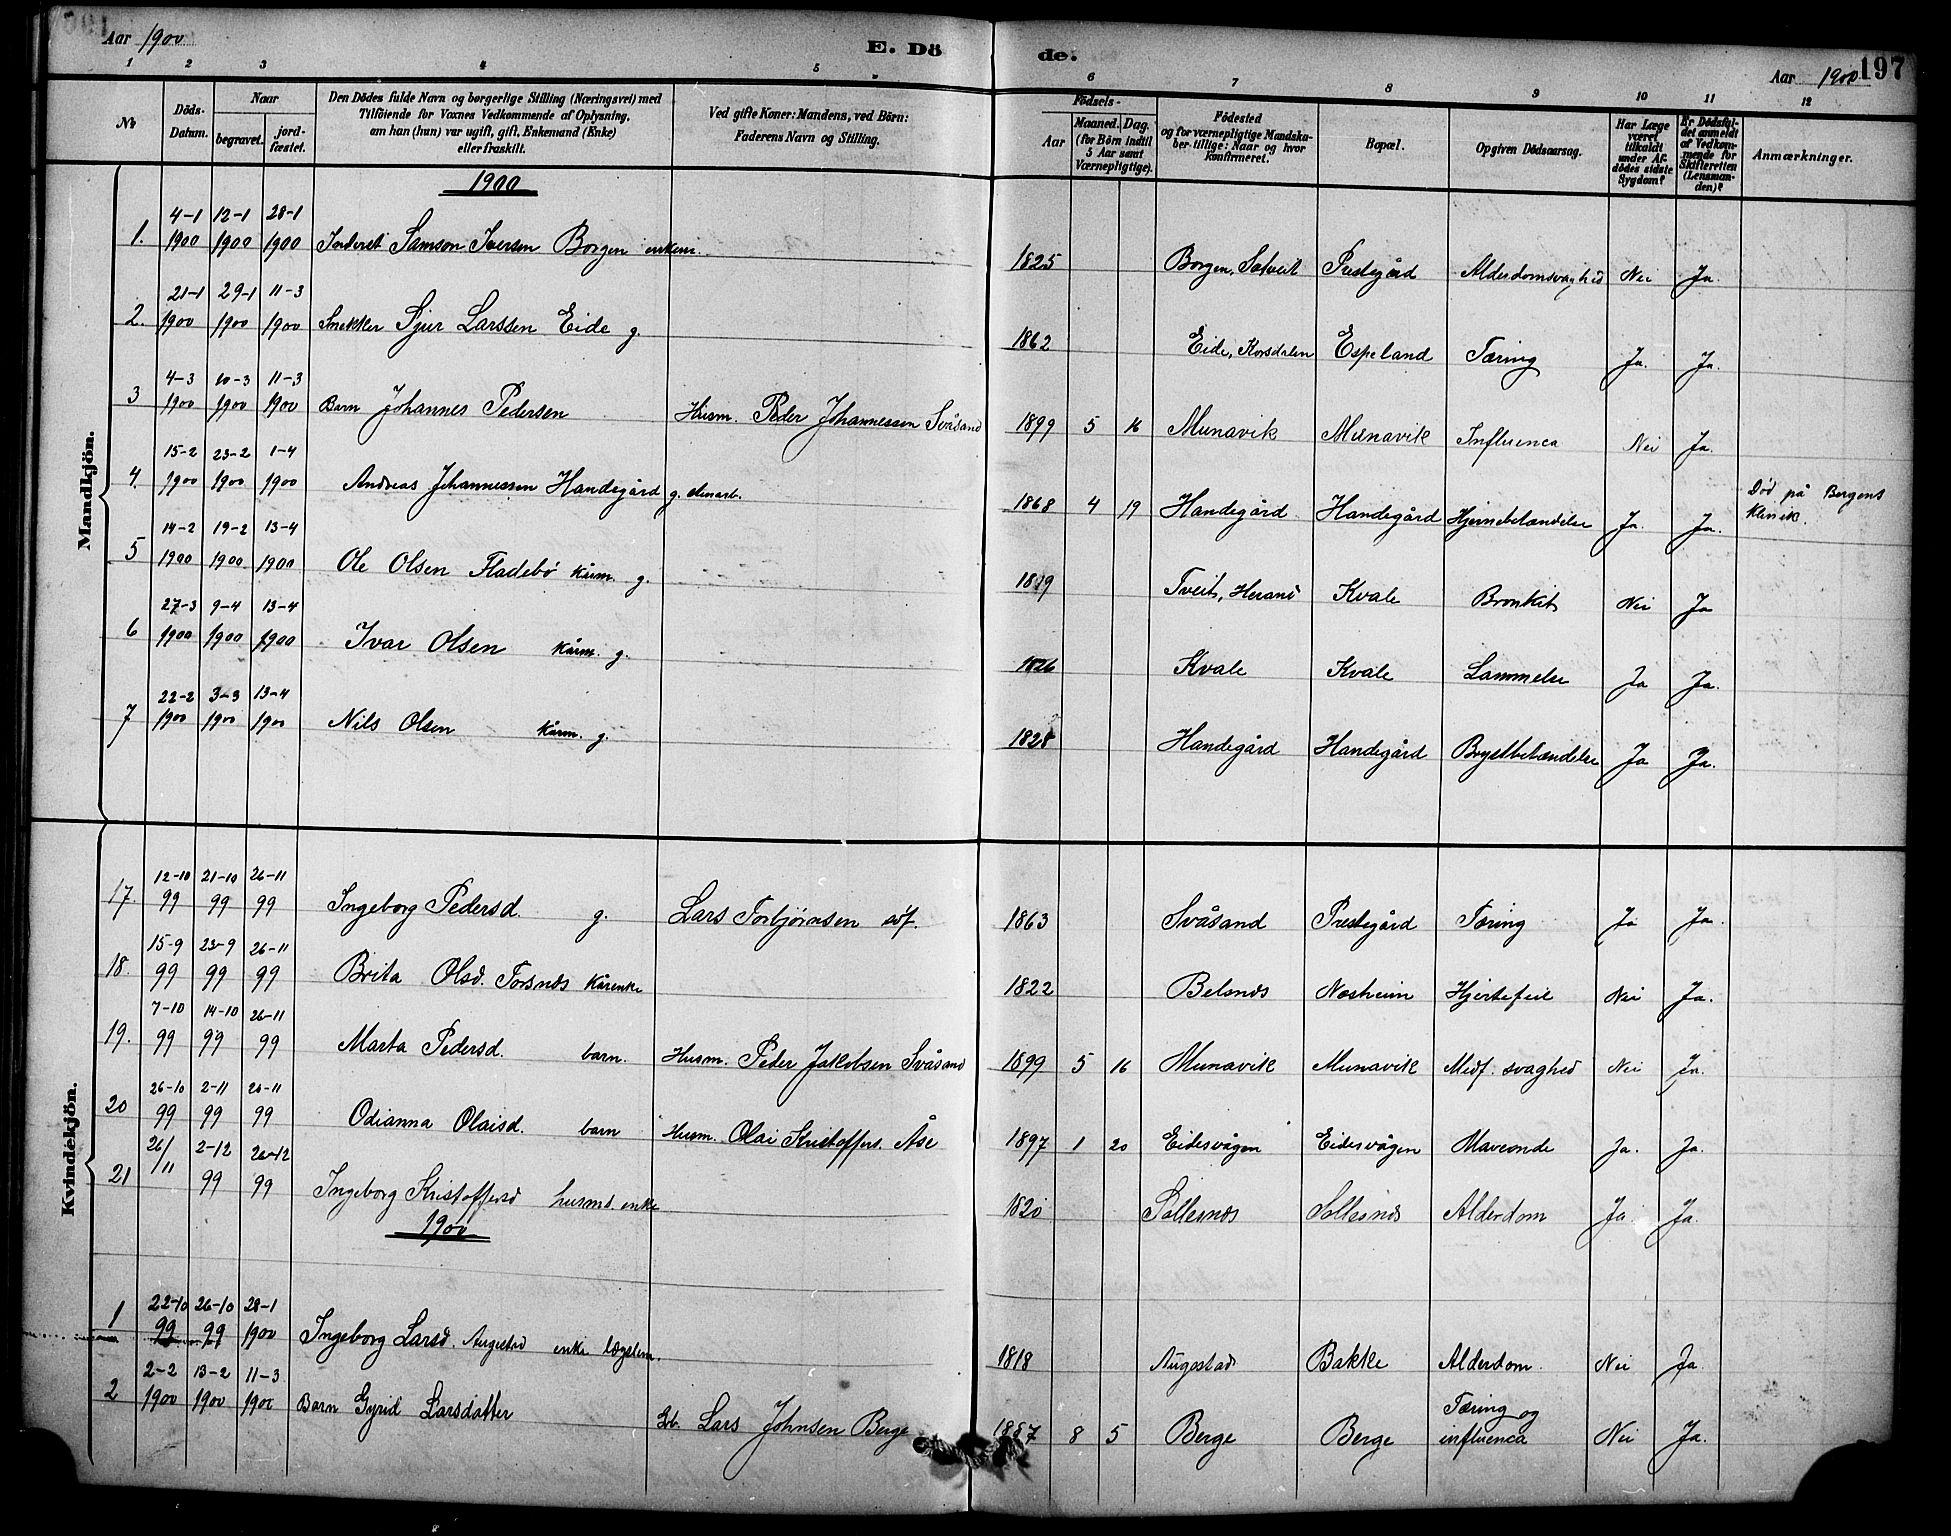 Aar 1900
E. Dö
de.
Aar 1900
197
1 2 3 4 5 6 7 8 9 10 11 12
No
Döds-Datum.
Naar
begravet.
jord-fæstet.
Den Dödes fulde Navn og borgerlige Stilling (Næringsvei) med
Tilföiende for Voxnes Vedkommende af Oplysning,
om han (hun) var ugift, gift, Enkemand (Enke)
eller fraskilt.
Ved gifte Koner: Mandens, ved Börn:
Faderens Navn og Stilling.
Födsels-
Aar
Maaned. Dag.
(for Börn indtil
5 Aar samt
Værnepligtige).
Födested
og for værnepligtige Mandska-
ber tillige: Naar og hvor
konfirmeret.
Bopæl.
Opgiven Dödsaarsag.
Har Læge
været
tilkaldt
under Af-
dödes sidste
Sygdom?
Er Dödsfal-
det anmeldt
af Vedkom-
mende for
Skifteretten
(Lensman-
den)?
Anmærkninger.
Mandkjön.
1900
1. 4-1 1900 12-1 1900 28-1 1900 Inderst Samson Iversen Borgen enkem. 1825 Borgen, Prestegård Alderdomsvaghed Nei Ja.
2. 21-1 1900 29-1 1900 11-3 1900 Snekker Sjur Larssen Eide g. 1862 Eide, Korsdalen Espeland Tæring Ja. Ja.
3 4-3 1900 10-3 1900 11-3 1900 Barn Johannes Pedersen Husm. Peder Johannessen Svåsand 1899 5 16 Munavik Munavik Influenca Nei Ja.
4. 15-2 1900 23-2 1900 1-4 1900 Andreas Johannessen Handegård g. 1868 4 19 Handegård Handegård Hjernebetændelse Ja. Ja. Död på Bergens Klinik.
5 14-2 1900 19-2 1900 13-4 1900 Ole Olsen Fladebö kårm. g. 1819 Tveit, Herand Kvale Bronkit Nei Ja
6 27-3 1900 9-4 1900 13-4 1900 Ivar Olsen kårm. g. 1826 Kvale Kvale Lammelse Ja Ja.
7 22-2 1900 3-3 1900 13-4 1900 Nils Olsen kårm. g. 1828 Handegård Handegård Brystbetændelse Ja Ja.
Kvindekjön.
17. 12-10 99 21-10 99 26-11 99 Ingeborg Pedersd. g. Lars Torbjörnsen 1863 Svåsand Prestegård Tæring Ja Ja.
18. 15-9 99 23-9 99 26-11 99 Brita Olsd. Torsnes kårenke 1822 Belsnes Nesheim Hjertefeil Nei Ja.
19. 7-10 99 14-10 99 26-11 99 Marta Pedersd. barn. Husm. Peder Jakobsen Svåsand 1899 5 16 Munavik Munavik Medf. svaghed Nei Ja.
20 26-10 99 2-11 99 20-11 99 Odianna Olaisd. barn Husm. Olai Kristoffers. Åse 1897 1 20 Eidesvågen Eidesvågen Maveonde Ja. Ja.
21 26/11 2-12 99 20-12 99 Ingeborg Kristoffersd husmd enke 1820 Sollesnes Sollesnes Alderdom Ja Ja.
1900
1 22-10 99 26-10 99 28-1 1900 Ingeborg Larsd. Augestad enke lægslem. 1818 Augestad Bakke Alderdom. Nei Ja
2 2-2 1900 13-2 1900 11-3 1900 Barn Gyrid Larsdatter Gb. Lars Johnsen Berge 1887 8 5 Berge Berge Tæring og influenca Nei Ja.